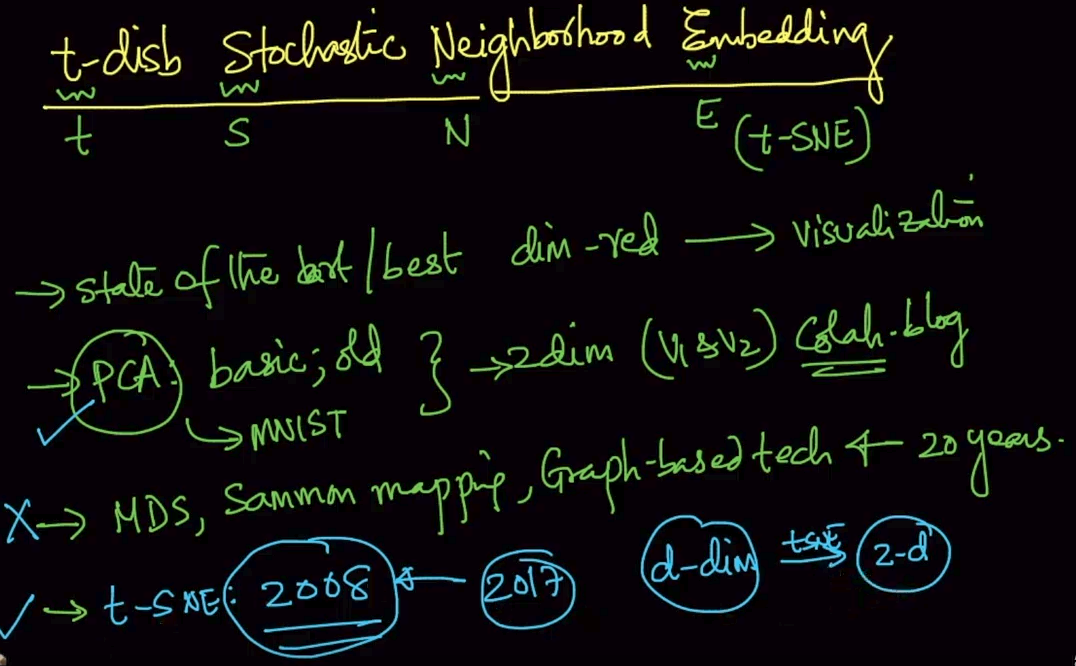 t-disb Stochastic Neighborhood Embedding
t S N E (t-SNE)
→ state of the art/best dim-red → visualization
→ PCA: basic; old } → 2dim (V1 & V2) Colah-blog
↳ MNIST
X → MDS, Sammon mapping, Graph-based tech ← 20 years.
✓ → t-SNE: 2008 ← 2017 d-dim tSNE → 2-d